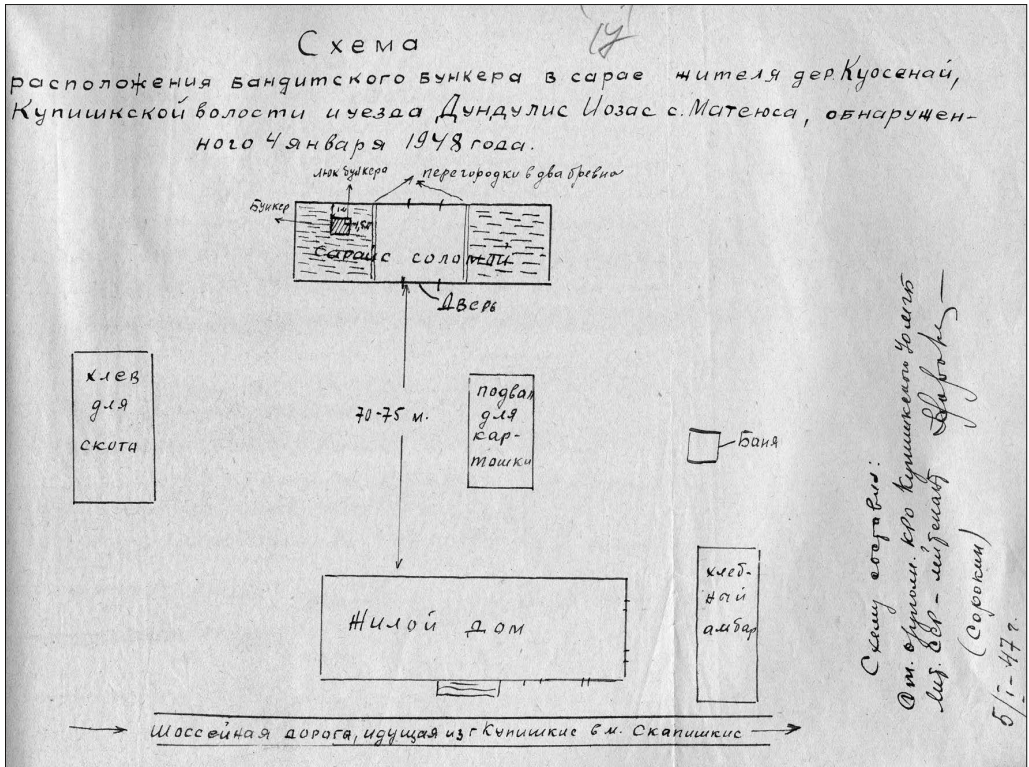 14
Схема
расположения бандитского бункера в сарае жителя дер. Куосенай,
Купишкской волости и уезда Дундулис Иозас с. Матеюса, обнаружен-
ного 4 января 1948 года.
люк бункера
перегородки в два бревна
Бункер
1 м
1,5 м
Сарай с соломой
Дверь
хлев
для
скота
70-75 м.
подвал
для
кар-
тошки
Баня
Жилой дом
хлеб-
ный
амбар
Шоссейная дорога, идущая из г Купишкис в м. Скапишкис
Схему составил:
Ст. оруполн. КРО Купишкского УО МГБ
Лит. ССР - лейтенант
(Сорокин)
5/I-47 г.